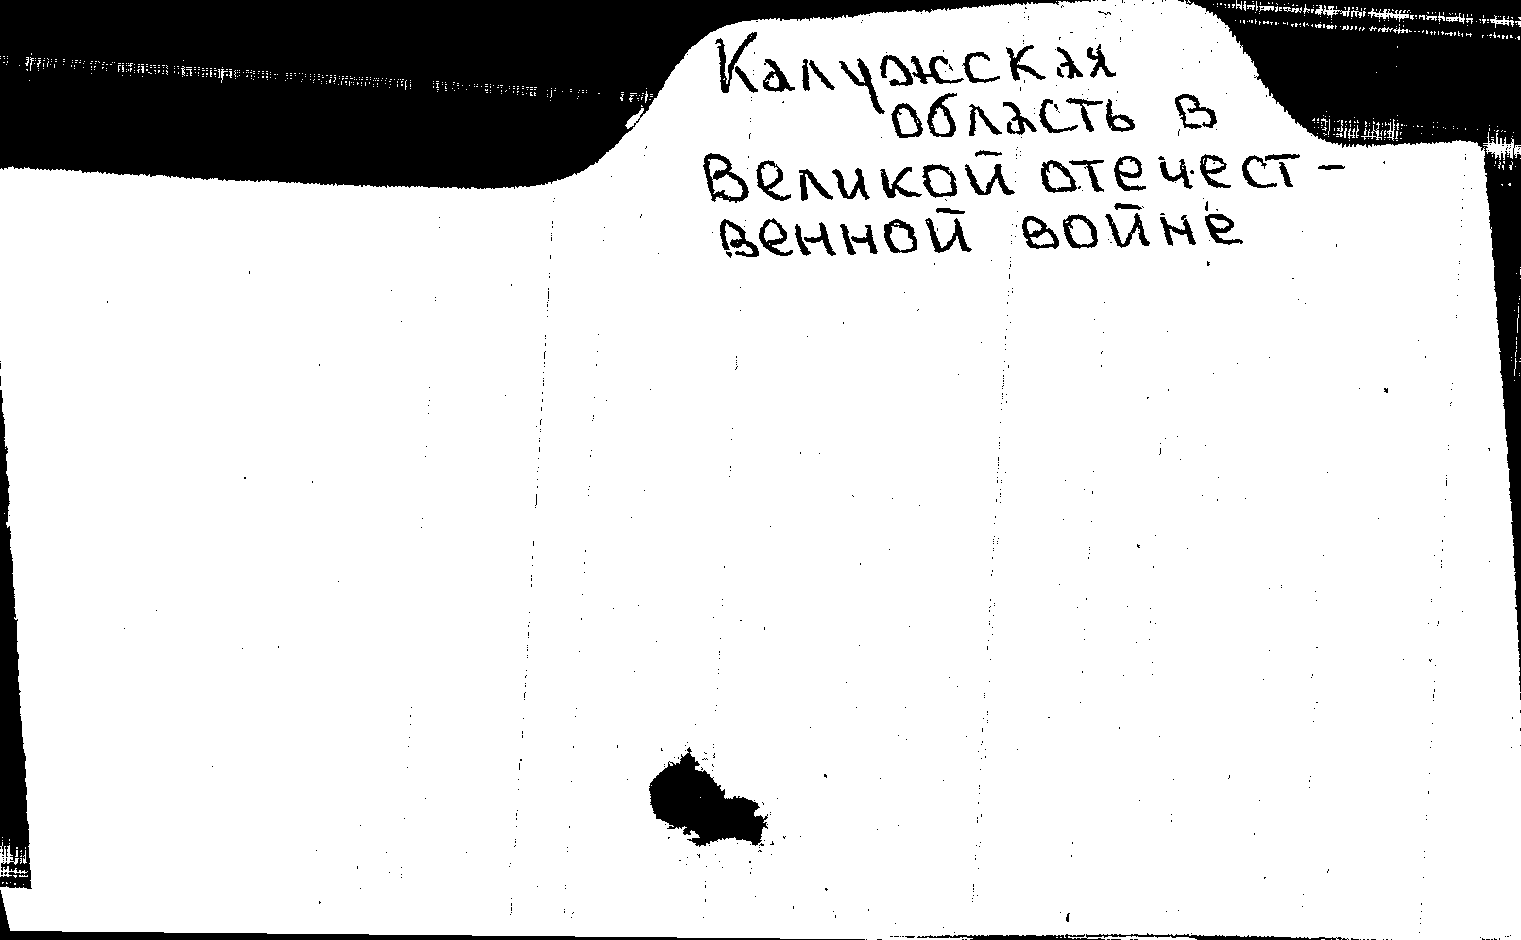 Калужская
область в
Великой отечест-
венной войне